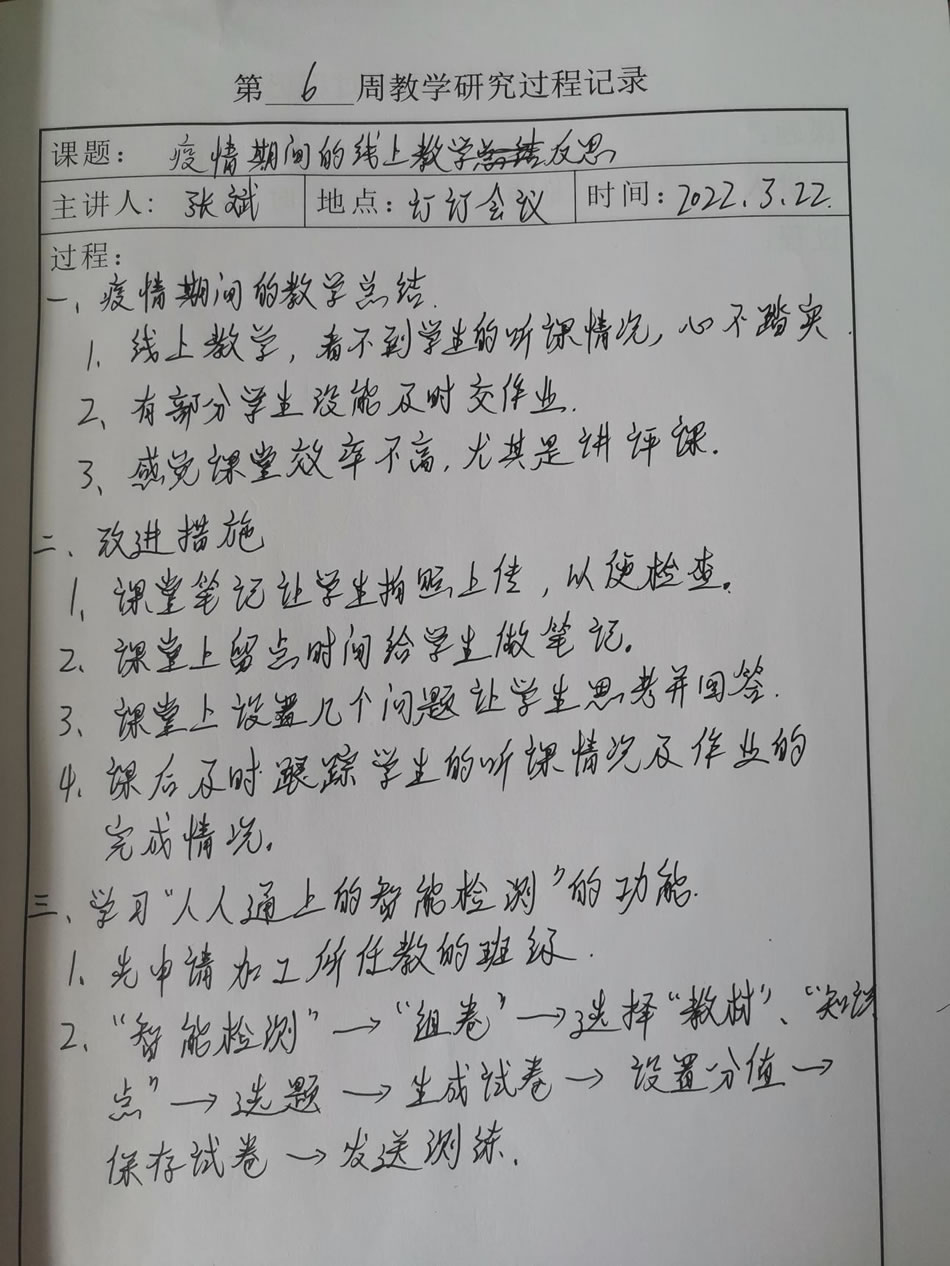 第 6 周教学研究过程记录
课题：疫情期间的线上教学反思
主讲人：张斌 地点：钉钉会议 时间：2022.3.22.
过程：
一、疫情期间的教学总结.
1. 线上教学，看不到学生的听课情况，心不踏实.
2、有部分学生没能及时交作业.
3、感觉课堂效率不高，尤其是讲评课.
二、改进措施
1、课堂笔记让学生拍照上传，以便检查。
2、课堂上留点时间给学生做笔记。
3、课堂上设置几个问题让学生思考并回答.
4. 课后及时跟踪学生的听课情况及作业的
完成情况。
三、学习“人人通上的智能检测”的功能.
1. 先申请加工所任教的班级.
2、“智能检测”→“组卷”→选择“教材”、“知识
点”→选题→生成试卷→设置分值→
保存试卷→发送测练.